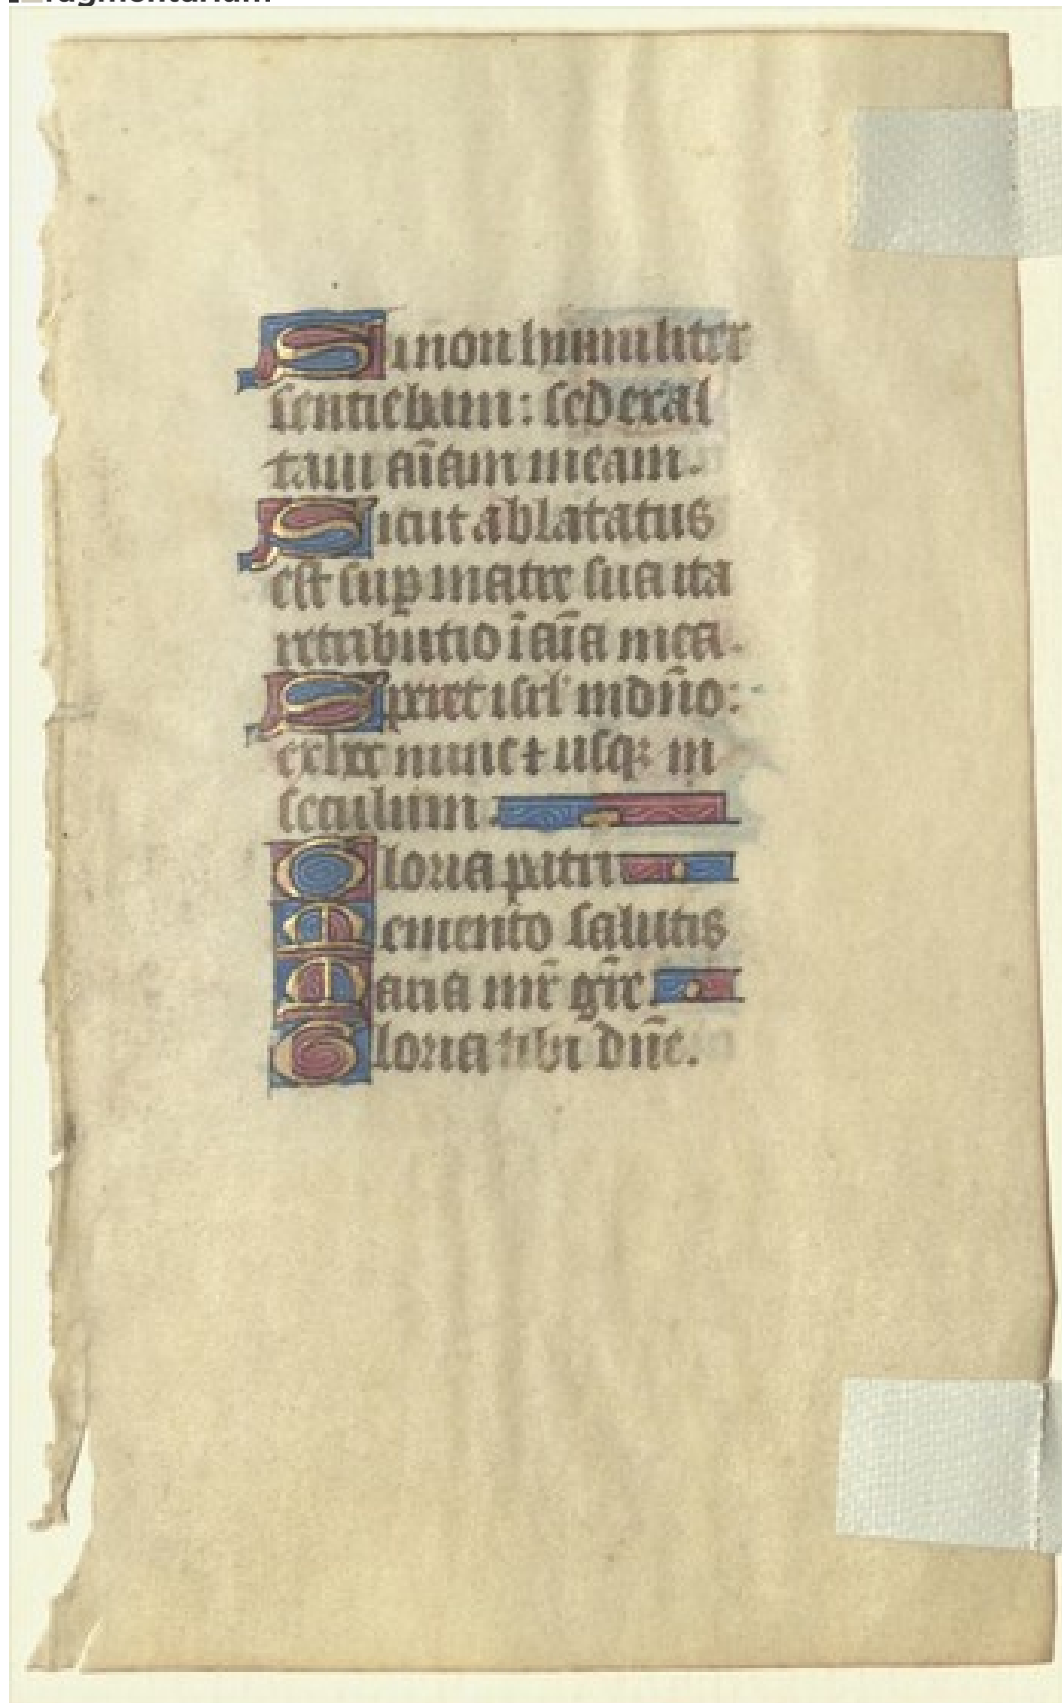 Si non humiliter
sentiebam: sed exal
taui aīam meam.
Sicut ablatatus
est sup matre sua ita
retributio ī aīa mea.
Speret isrl' in dño:
ex hoc nunc ⁊ usqꝫ in
seculum.
Gloria patri
Memento salutis
Maria mr̄ gr̄e.
Gloria tibi dñe.